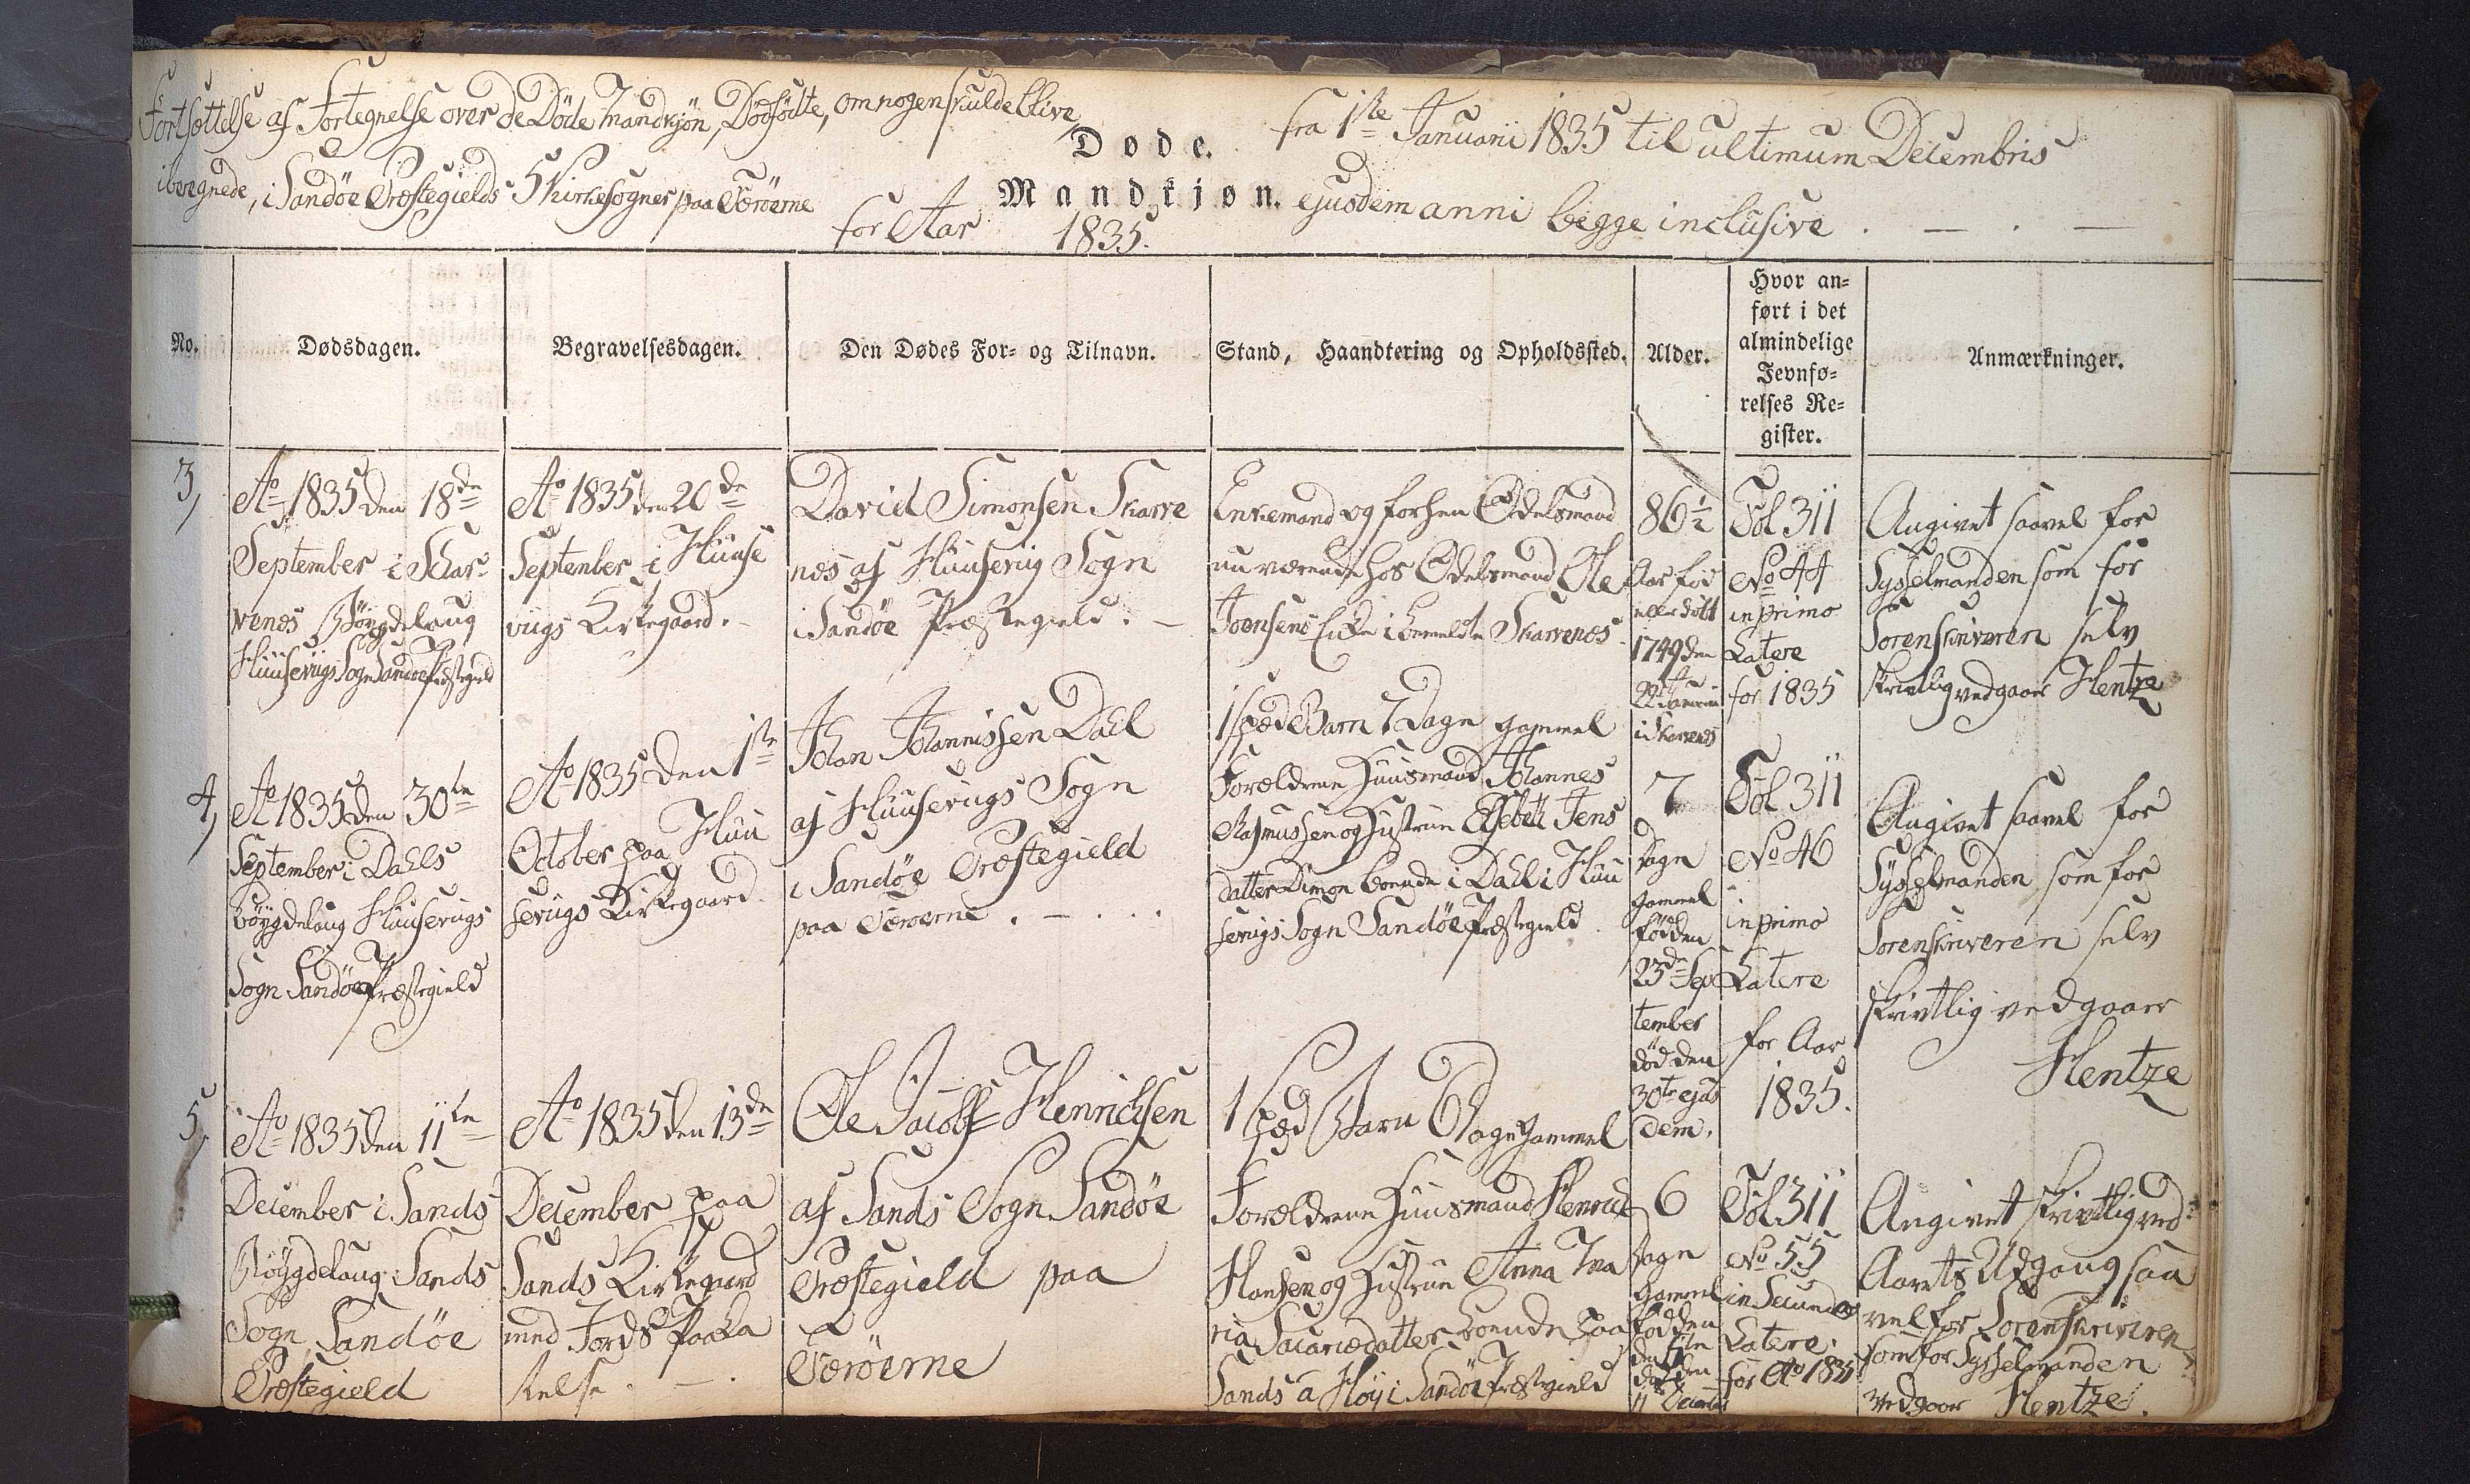 Fortsættelse af Fortegnelse over de Døde Mandkjøn, Dødfødte, om nogen skulde blive
iberegnede, i Sandöe Præstegields 5 Kirkesogner paa Færöerne
for Aar 1835.
Døde.
Mandkjøn.
fra 1ste Januarii 1835 til ultimum Decembris
ejusdem anni begge inclusive . — . —
No.
Dødsdagen.
Begravelsesdagen.
Den Dødes For- og Tilnavn.
Stand, Haandtering og Opholdssted.
Alder.
Hvor an-
ført i det
almindelige
Jevnfø-
relses Re-
gister.
Anmærkninger.
3,
Ao 1835 den 18de
September i Skar-
venes Böygdelaug
Huuseviigs Sogn Sandöe Præstegield
Ao 1835 den 20de
September i Huuse
viigs Kirkegaard. -
David Simonsen Skarve
nes af Huuseviig Sogn
i Sandöe Præstegield. -
Enkemand og forhen Odelsmand
nu værende hos Odelsmand Ole
Joensens Enke i bemeldte Skarvenes
86½
Aar fød
1749 den
i Skarvenes
Fol 311
No 44
in primo
Latere
for 1835
Angivet saavel for
Sysselmanden som for
Sorenskriveren selv
skrivtlig vedgaaer Hentze
4,
Ao 1835 den 30te
September i Dahls
böygdelaug Huuseviigs
Sogn Sandöe Præstegield
Ao 1835 den 1ste
October paa Huu
seviigs Kirkegaard.
Johan Johannissen Dahl
af Huuseviigs Sogn
i Sandöe Præstegield
paa Færöerne . - . . .
1 spæd Barn 7 Dage gammel
Forældrene Huusmand Johannes
Rasmussen og Hustrue Elsebeth Jens
datter Dimon boende i Dahl i Huu
seviigs Sogn Sandöe Præstegield .
7
Dage
gammel
fød den
23de Sep
tember
död den
30te ejus
dem.
Fol 311
No 46
in primo
Latere
for Aar
1835.
Angivet saavel for
Sysselmanden som for
Sorenskriveren selv
skrivtlig vedgaaer
Hentze
5,
Ao 1835 den 11te
December i Sands
Böygdelaug Sands
Sogn Sandöe
Præstegield
Ao 1835 den 13de
December paa
Sands Kirkegaard
med Jords Paaka
stelse . — .
Ole Jacob Henrichsen
af Sands Sogn Sandöe
Præstegield paa
Færöerne
1 spæd Barn 6 Dage gammel
Forældrene Huusmand Henrich
Hansen og Hustrue Anna Ma
ria Sacariædatter boende paa
Sands à Höy i Sandöe Præstegield
6
Dage
gammel
fød den
död den
11te December
Fol 311
No 55
in Secundo
Latere
for Ao 1835
Angivet skrivtlig ved
Aarets Udgang saa
vel for Sorenskriveren
som for Sysselmanden
vedgaaer Hentze.